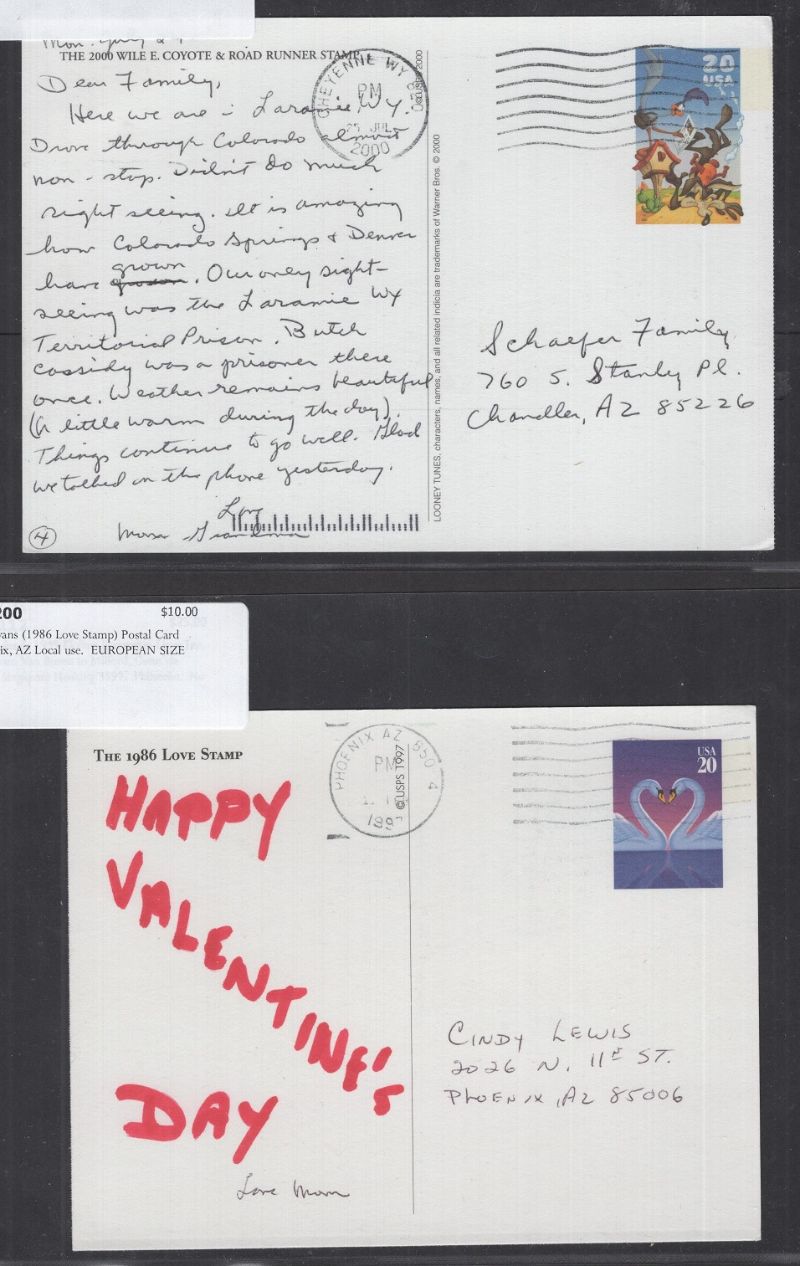 Mon. July 24
THE 2000 WILE E. COYOTE & ROAD RUNNER STAMP
Dear Family,
Here we are in Laramie WY.
Drove through Colorado almost
non-stop. Didn't do much
sight seeing. It is amazing
how Colorado Springs & Denver
have grown. Our only sight-
seeing was the Laramie WY
Territorial Prison. Butch
Cassidy was a prisoner there
once. Weather remains beautiful
(A little warm during the day).
Things continue to go well. Glad
we talked on the phone yesterday.
Love
Grandma
4
CHEYENNE WY 820
PM
25 JUL
2000
© USPS 2000
LOONEY TUNES, characters, names, and all related indicia are trademarks of Warner Bros. © 2000
20
USA
Schaefer Family
760 S. Stanly Pl.
Chandler, AZ 85226
200
$10.00
vans (1986 Love Stamp) Postal Card
ix, AZ Local use. EUROPEAN SIZE
THE 1986 LOVE STAMP
HAPPY
VALENTINE'S
DAY
Love Mom
PHOENIX AZ 850 4
PM
1997
© USPS 1997
USA
20
CINDY LEWIS
2026 N. 11th ST.
PHOENIX, AZ 85006